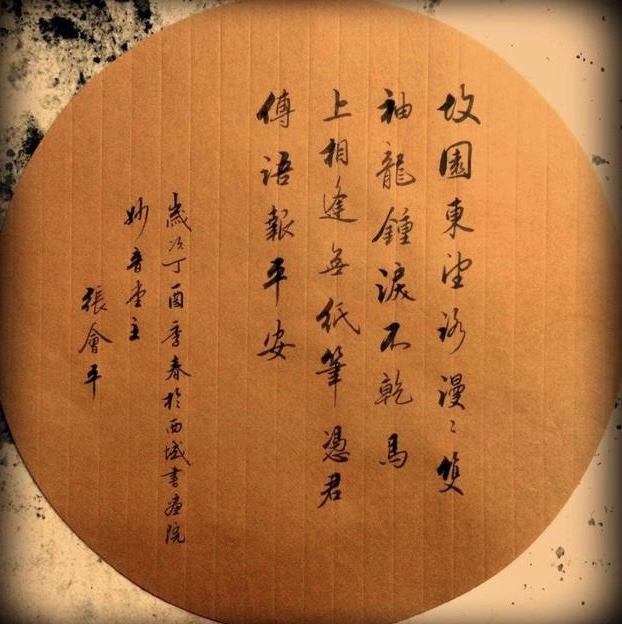 故園東望路漫〻雙
袖龍鍾淚不乾馬
上相逢無紙筆憑君
傳語報平安
歲次丁酉季春於西域書畫院
妙音堂主
張會平